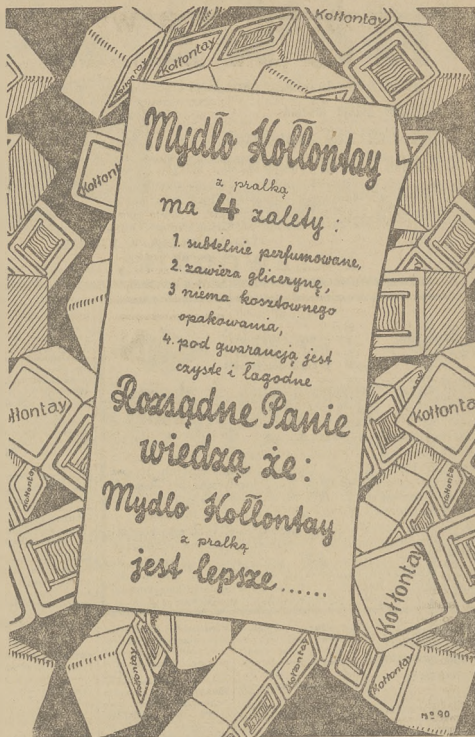 Kołłontay
Kołłontay
Kołłontay
Mydło Kołłontay
z pralką
ma 4 zalety :
1. subtelnie perfumowane,
2. zawiera glicerynę,
3 niema kosztownego
opakowania,
4. pod gwarancją jest
czyste i łagodne
Rozsądne Panie
wiedzą że :
Mydło Kołłontay
z pralką
jest lepsze......
Kołłontay
Kołłontay
Kołłontay
Kołłontay
Kołłontay
Kołłontay
Kołłontay
Kołłontay
Kołłontay
nº 90